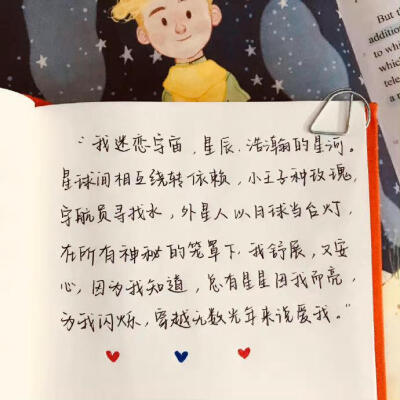 But th
addition
to whi
which
tele
a n
“我迷恋宇宙，星辰，浩瀚的星河。
星球间相互绕转依赖，小王子种玫瑰，
宇航员寻找水，外星人以月球当台灯，
在所有神秘的笼罩下，我舒展，又安
心，因为我知道，总有星星因我而亮，
为我闪烁，穿越无数光年来说爱我。”